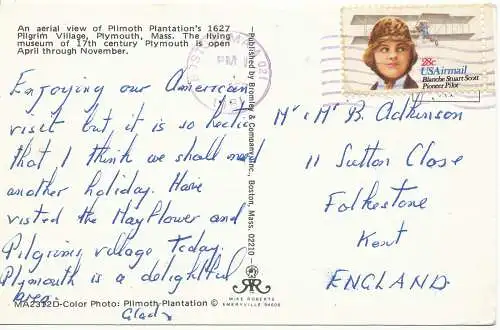 An aerial view of Plimoth Plantation's 1627
Pilgrim Village, Plymouth, Mass. The living
museum of 17th century Plymouth is open
April through November.
Enjoying our American
visit but it is so hectic
that I think we shall need
another holiday. Have
visted the Mayflower and
Pilgrims village today.
Plymouth is a delightful
area.
Gladys
MA2392D-Color Photo: Plimoth Plantation ©
Published by Bromley & Company, Inc., Boston, Mass. 02210
MIKE ROBERTS
EMERYVILLE 94608
28c
USAirmail
Blanche Stuart Scott
Pioneer Pilot
PM
Mr & Mrs B. Adkinson
11 Sutton Close
Folkestone
Kent
ENGLAND